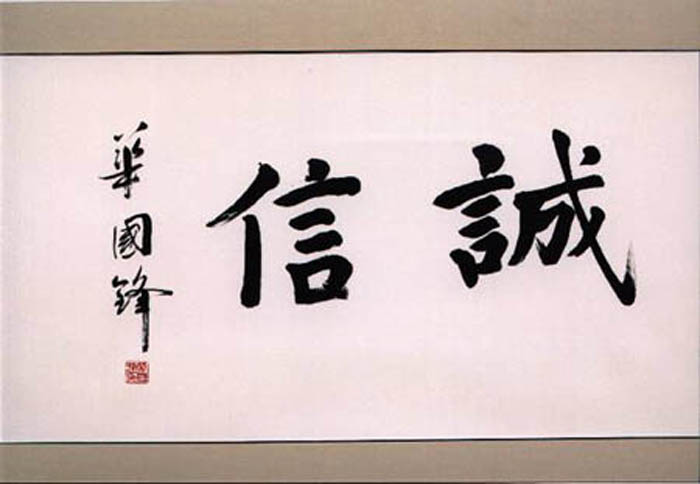 誠信
華國鋒